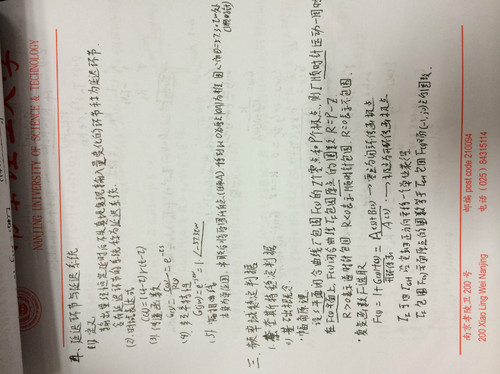 NANJING UNIVERSITY OF SCIENCE & TECHNOLOGY
五、延迟环节与延迟系统
(1) 定义
输出量经恒定延时后不失真地复现输入量变化的环节称为延迟环节.
含有延迟环节的系统称为延迟系统.
(2) 时域表达式
C(t)=1(t-τ)r(t-τ)
(3) 传递函数
G(s)=C(s)/R(s)=e^-τs
(4) 频率特性
G(jω)=e^-jτω=1·∠-57.3τω
(5) 幅相曲线
三、频率域稳定判据
1. 奈奎斯特稳定判据
(1) 基础概念.
·幅角原理
设s平面闭合曲线Γ包围F(s)的Z个零点和P个极点,则s沿Γ顺时针运动一周时
在F(s)平面上,F(s)闭合曲线Γ_F包围原点的圈数 R=P-Z.
R>0表示逆时针包围, R<0表示顺时针包围, R=0表示不包围.
·复变函数F选取
F(s)=1+G(s)H(s)=A(s)+B(s)/A(s) →零点为闭环传函极点
开环传函 →极点为开环传函极点
Γ_F可由Γ_GH沿实轴正方向平移一个单位获得
Γ_F包围F(s)平面原点的圈数等于Γ_GH包围F(s)平面(-1,j0)点的圈数.
南京孝陵卫 200 号 邮编 post code 210094
200 Xiao Ling Wei Nanjing 电话 (025) 84315114